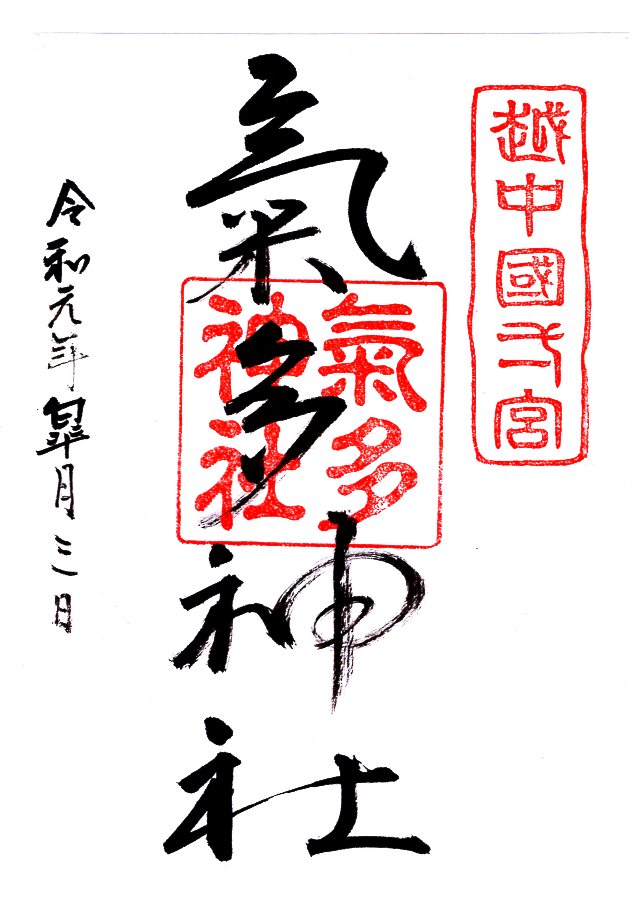 越中國弌宮
氣多神社
氣多
神社
令和元年皐月三日